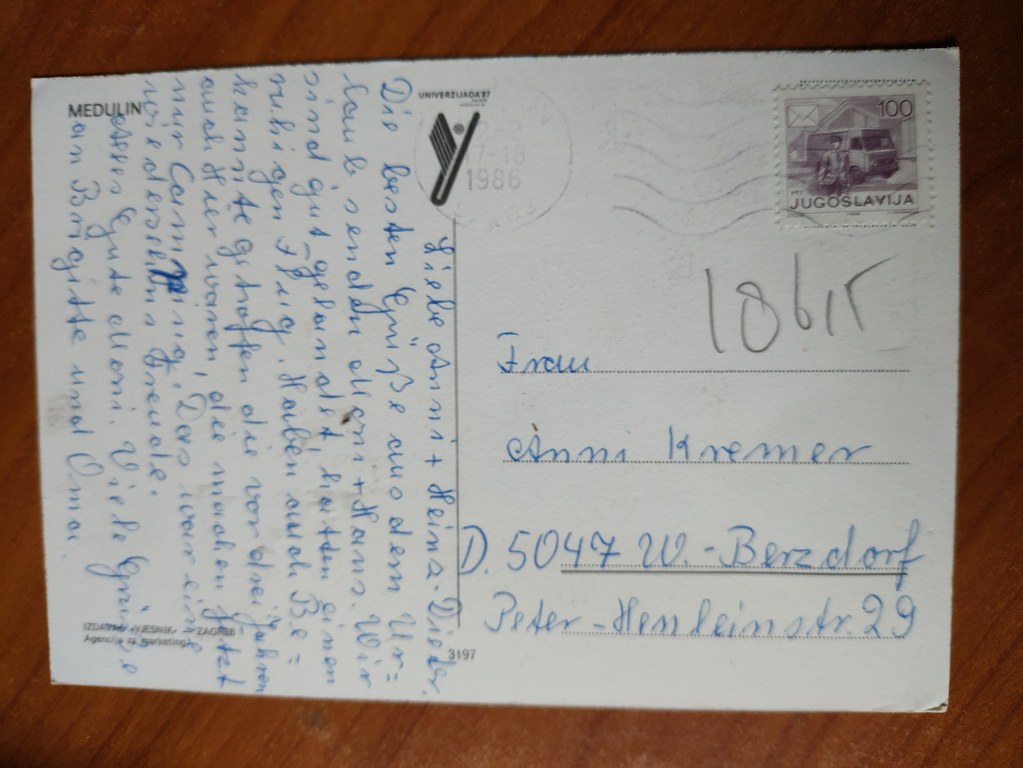 MEDULIN
UNIVERZIJADA'87
ZAGREB
JUGOSLAVIJA
17-18
1986
100
PTT
JUGOSLAVIJA
18615
Liebe Anni + Heinz-Dieter.
Die besten Grüße aus dem Ur=
laub, senden Moni + Hans. Wir
sind gut gelandet hatten einen
ruhigen Flug. Haben auch Be=
kannte getroffen die vor drei Jahren
auch hier waren, die machen jetzt
nur Camping. Das war eine
wiedersehns Freude.
Alles Gute Moni. Viele Grüße
an Brigitte und Oma.
Frau
Anni Kremer
D. 5047 W.-Berzdorf
Peter-Henleinstr. 29
IZDAVAČ »VJESNIK« – ZAGREB
Agencija za marketing
3197